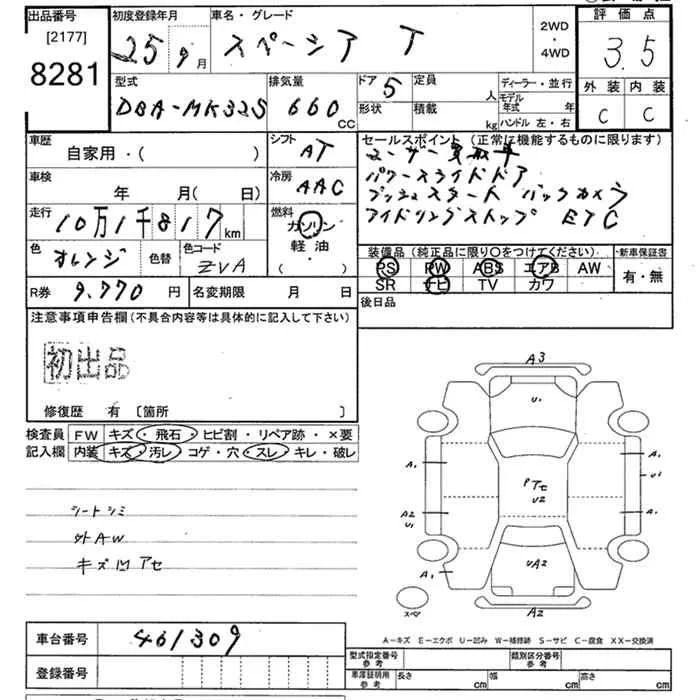 出品番号
[2177]
8281
初度登録年月
25 9月
車名・グレード
スペーシア T
2WD
・
4WD
評価点
3.5
外装 内装
C C
型式
DBA-MK32S
排気量
660 CC
ドア 5
形状
定員 人
積載 kg
ディーラー・並行
モデル年式 年
ハンドル 左・右
車歴
自家用・( )
シフト
AT
セールスポイント (正常に機能するものに限ります)
ユーザー買取車
パワースライドドア
プッシュスタート バックカメラ
アイドリングストップ ETC
車検
年 月( 日)
冷房
AAC
走行
10万1千817km
燃料
ガソリン
軽油
・( )
色
オレンジ
色替
色コード
ZVA
装備品 (純正品に限り○をつけてください)
PS PW ABS エアB AW
SR ナビ TV カワ
新車保証書
有・無
R券 9.770 円
名変期限 月 日
後日品
注意事項申告欄 (不具合内容等は具体的に記入して下さい)
初出品
修復歴 有 〔箇所 〕
検査員記入欄
FW キズ・飛石・ヒビ割・リペア跡・×要
内装 キズ・汚レ・コゲ・穴・スレ・キレ・破レ
シートシミ
外AW
キズ凹アセ
A3
U1
A1
A1
U1
PアセU2
A2
U1
A1
A1
UA2
A2
スペア
A-キズ E-エクボ U-凹み W-補修跡 S-サビ C-腐食 XX-交換済
車台番号 461309
登録番号
型式指定番号 参考
類別区分番号 参考
車庫証明用 参考
長さ cm
幅 cm
高さ cm